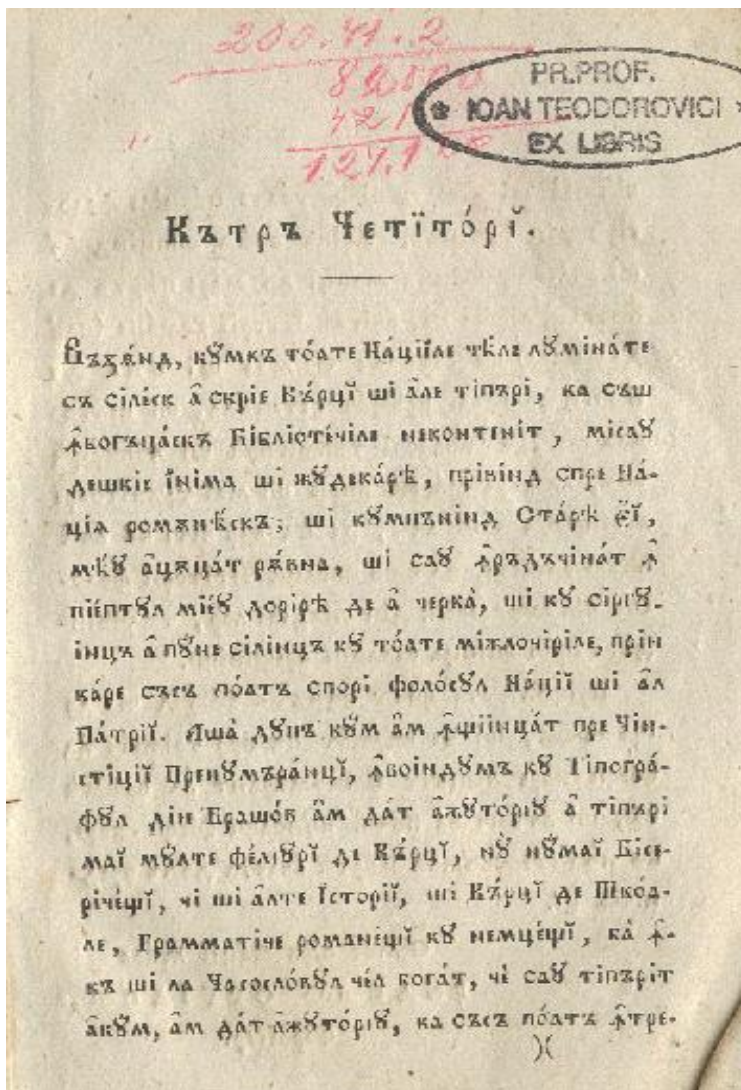 200.41.2
PR. PROF.
IOAN TEODOROVICI
EX LIBRIS
Кътръ Четїто́рїй.
Възѫ́нд, кꙋмкъ то́ате На́цїиле чѣле лꙋмїна́те
съ сїле́ск а҆ скрїе Кѫ́рцй шї а҆ле тїпърї, ка съш
ꙟ҆богъца́скъ Бїблїоте́чїле неконтенїт, мїсаꙋ
дешкїс і҆нїма шї жꙋдека́рѣ, прївїнд спре На́-
цїа ромънѣ́скъ; шї кꙋмпънїнд Ста́рѣ е҆й,
мѣ́ꙋ а҆цѫца́т рѫ́вна, шї саꙋ ꙟ҆ръдъчїна́т ꙟ҆
пїе́птꙋл мїе́ꙋ дорї́рѣ де а҆ черка̀, шї кꙋ сїргꙋ-
і́нцъ а҆ пꙋ́не сїлі́нцъ кꙋ то́ате мїжлочі́рїле, прїн
ка́ре съсъ по́атъ спорї фоло́сꙋл На́цїй шї а҆л
Па́трїй. Аша̀ дꙋпъ кꙋм а҆м ꙟ҆щїїнца́т пре Чїн-
стїцїй Пренꙋмъра́нцй, ꙟ҆воїндꙋмъ кꙋ Тїпогра́-
фꙋл дїн Брашо́в а҆м да́т а҆жꙋто́рїꙋ а҆ тїпърї
май мꙋ́лте фе́люрй де Кѫ́рцй, нꙋ̀ нꙋ́май Бїсе-
рїче́щй, чї шї а҆лте І҆сто́рїй, шї Кѫ́рцй де Шко́а-
ле, Грамматїче романе́щй кꙋ немце́щй, ка̀ ꙟ҆-
къ шї ла Часосло́вꙋл че́л бога́т, чѐ саꙋ тїпърі́т
а҆кꙋ́м, а҆м да́т а҆жꙋто́рїꙋ, ка съсъ по́атъ ꙟ҆тре-
)(